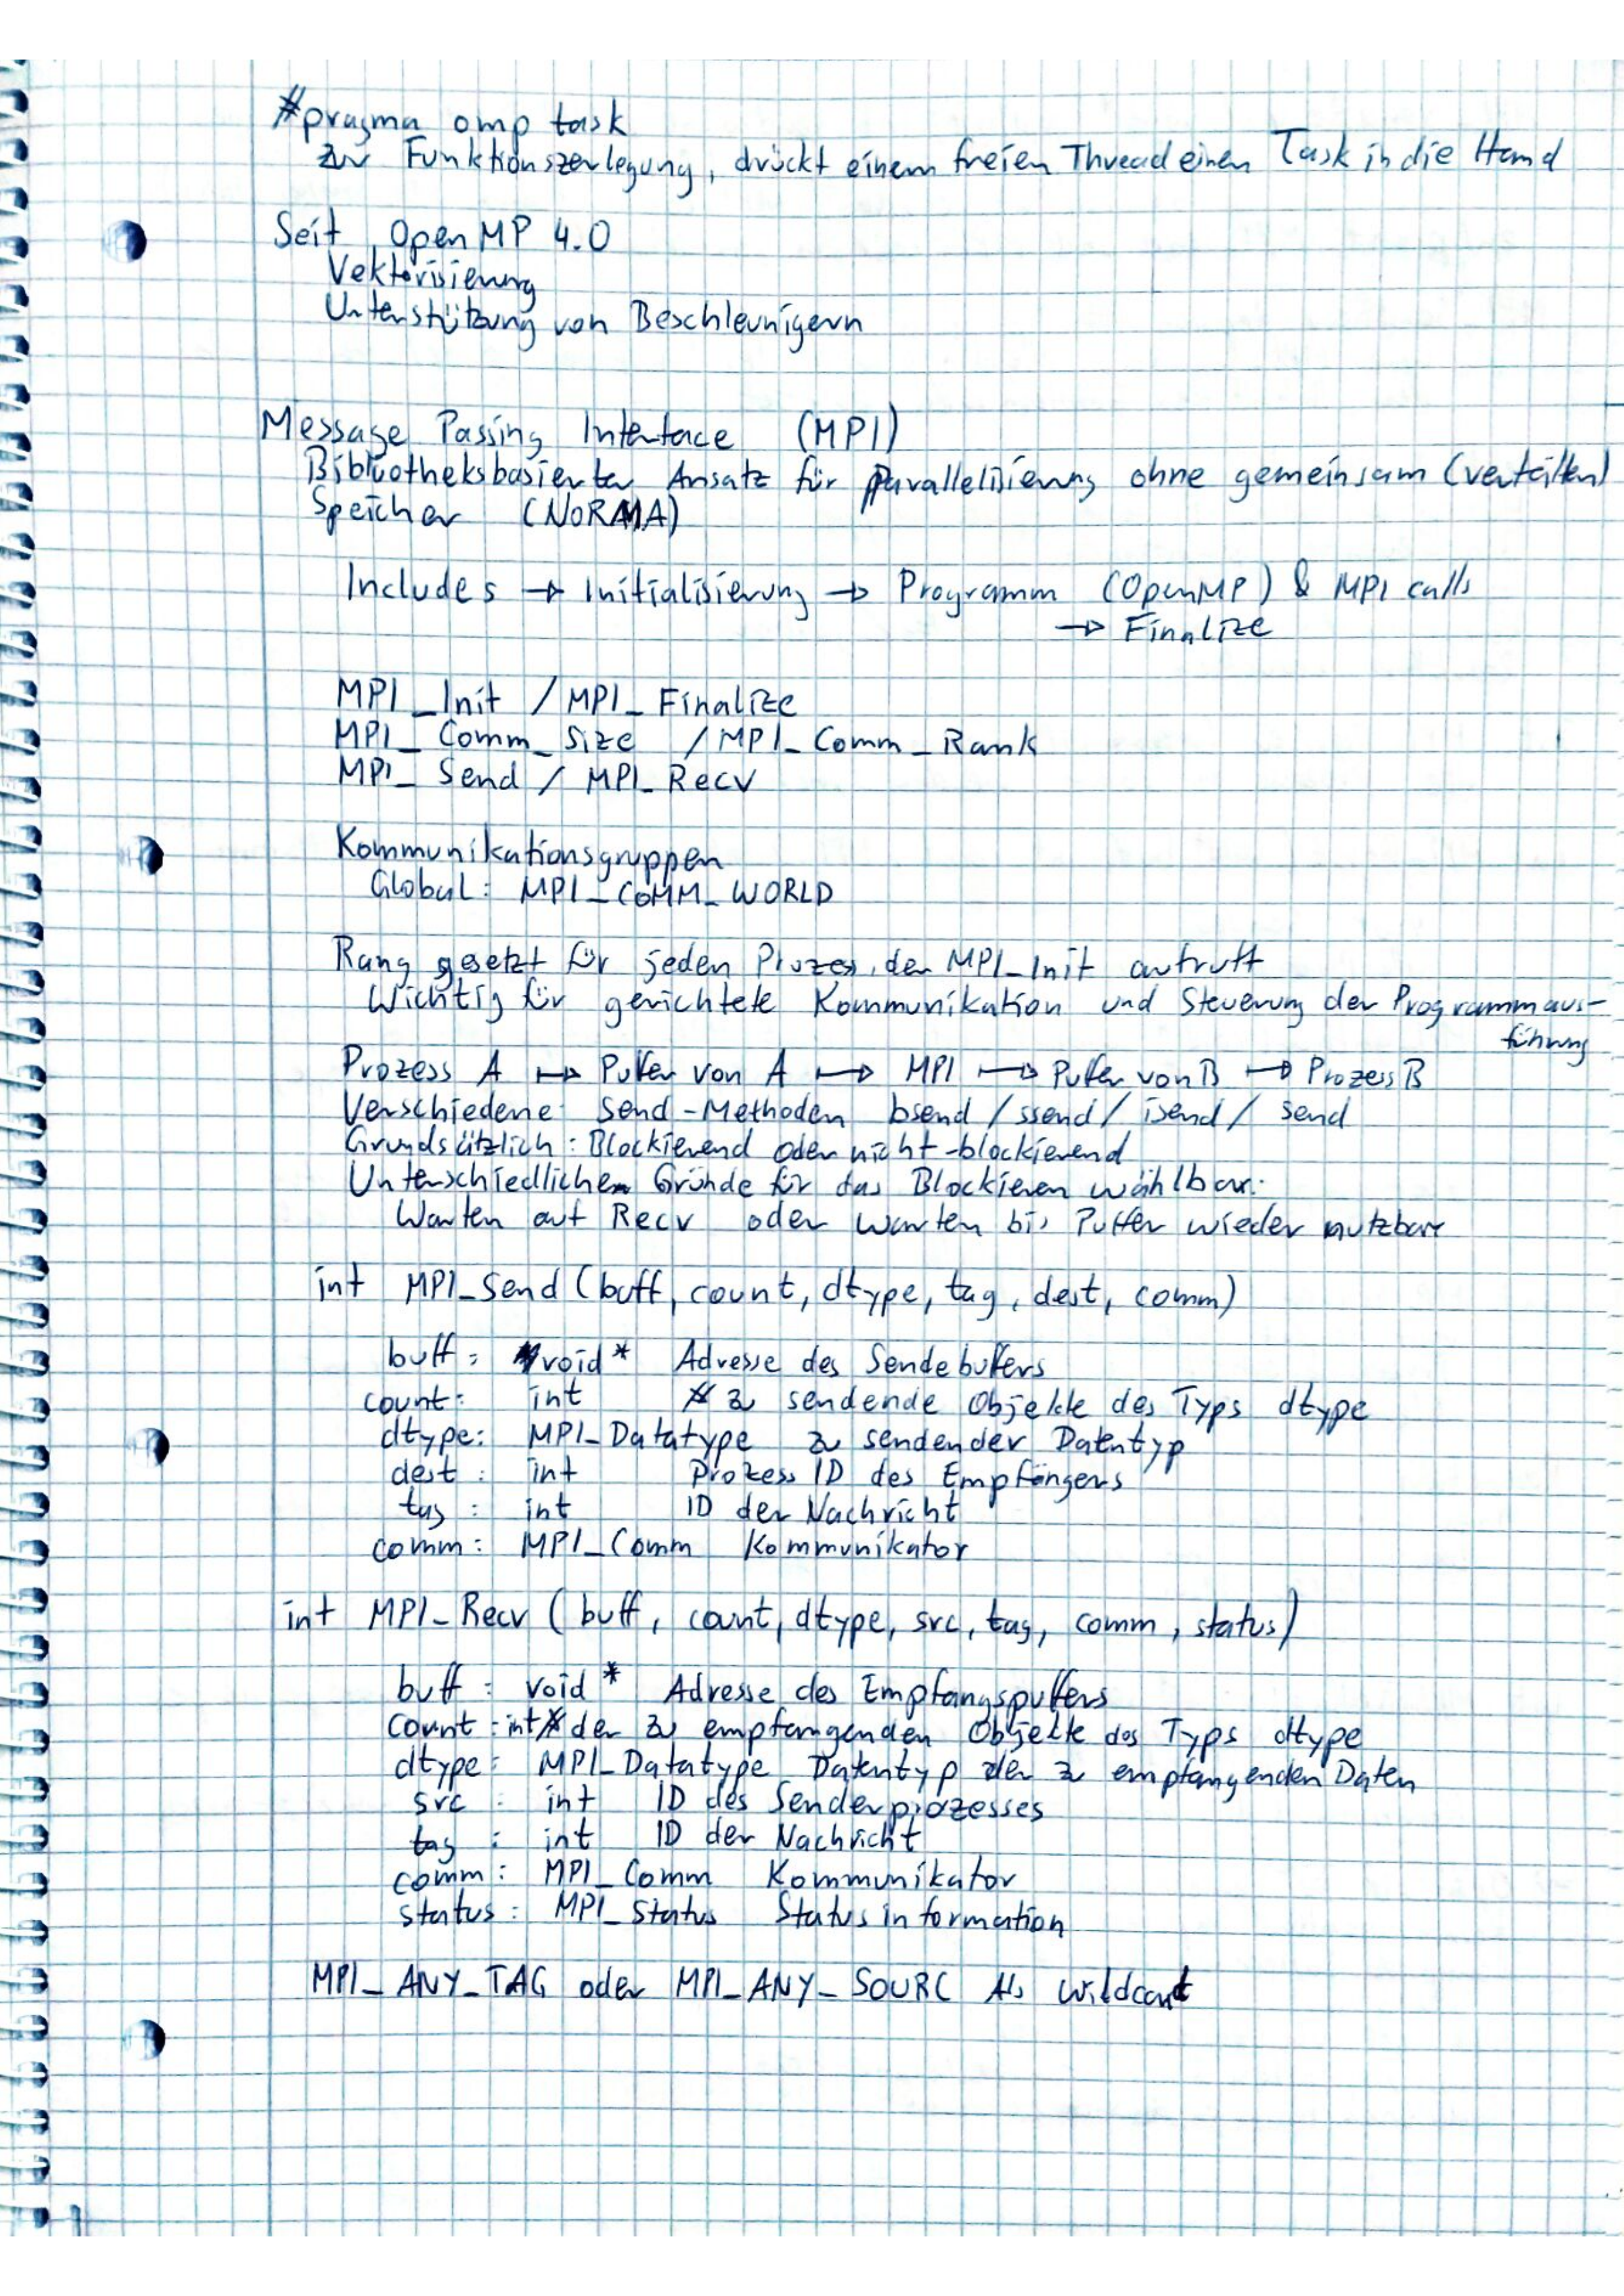 #pragma omp task
zur Funktionszerlegung, drückt einem freien Thread einen Task in die Hand
Seit OpenMP 4.0
Vektorisierung
Unterstützung von Beschleunigern
Message Passing Interface (MPI)
Bibliotheksbasierter Ansatz für Parallelisierung ohne gemeinsam (verteilten)
Speicher (NORMA)
Includes → Initialisierung → Programm (OpenMP) & MPI calls
→ Finalize
MPI_Init / MPI_Finalize
MPI_Comm_Size / MPI_Comm_Rank
MPI_Send / MPI_Recv
Kommunikationsgruppen
Global: MPI_COMM_WORLD
Rang gesetzt für jeden Prozess, der MPI_Init aufruft
Wichtig für gerichtete Kommunikation und Steuerung der Programmaus-
führung
Prozess A ↦ Puffer von A ↦ MPI ↦ Puffer von B ↦ Prozess B
Verschiedene Send-Methoden bsend / ssend / isend / send
Grundsätzlich: Blockierend oder nicht-blockierend
Unterschiedliche Gründe für das Blockieren wählbar:
Warten auf Recv oder warten bis Puffer wieder nutzbar
int MPI_Send (buff, count, dtype, tag, dest, comm)
buff: void* Adresse des Sendebuffers
count: int # zu sendende Objekte des Typs dtype
dtype: MPI_Datatype zu sendender Datentyp
dest: int Prozess ID des Empfängers
tag: int ID der Nachricht
comm: MPI_Comm Kommunikator
int MPI_Recv (buff, count, dtype, src, tag, comm, status)
buff: void* Adresse des Empfangspuffers
count: int # der zu empfangenden Objekte des Typs dtype
dtype: MPI_Datatype Datentyp der zu empfangenden Daten
src: int ID des Senderprozesses
tag: int ID der Nachricht
comm: MPI_Comm Kommunikator
status: MPI_Status Statusinformation
MPI_ANY_TAG oder MPI_ANY_SOURC Als Wildcard